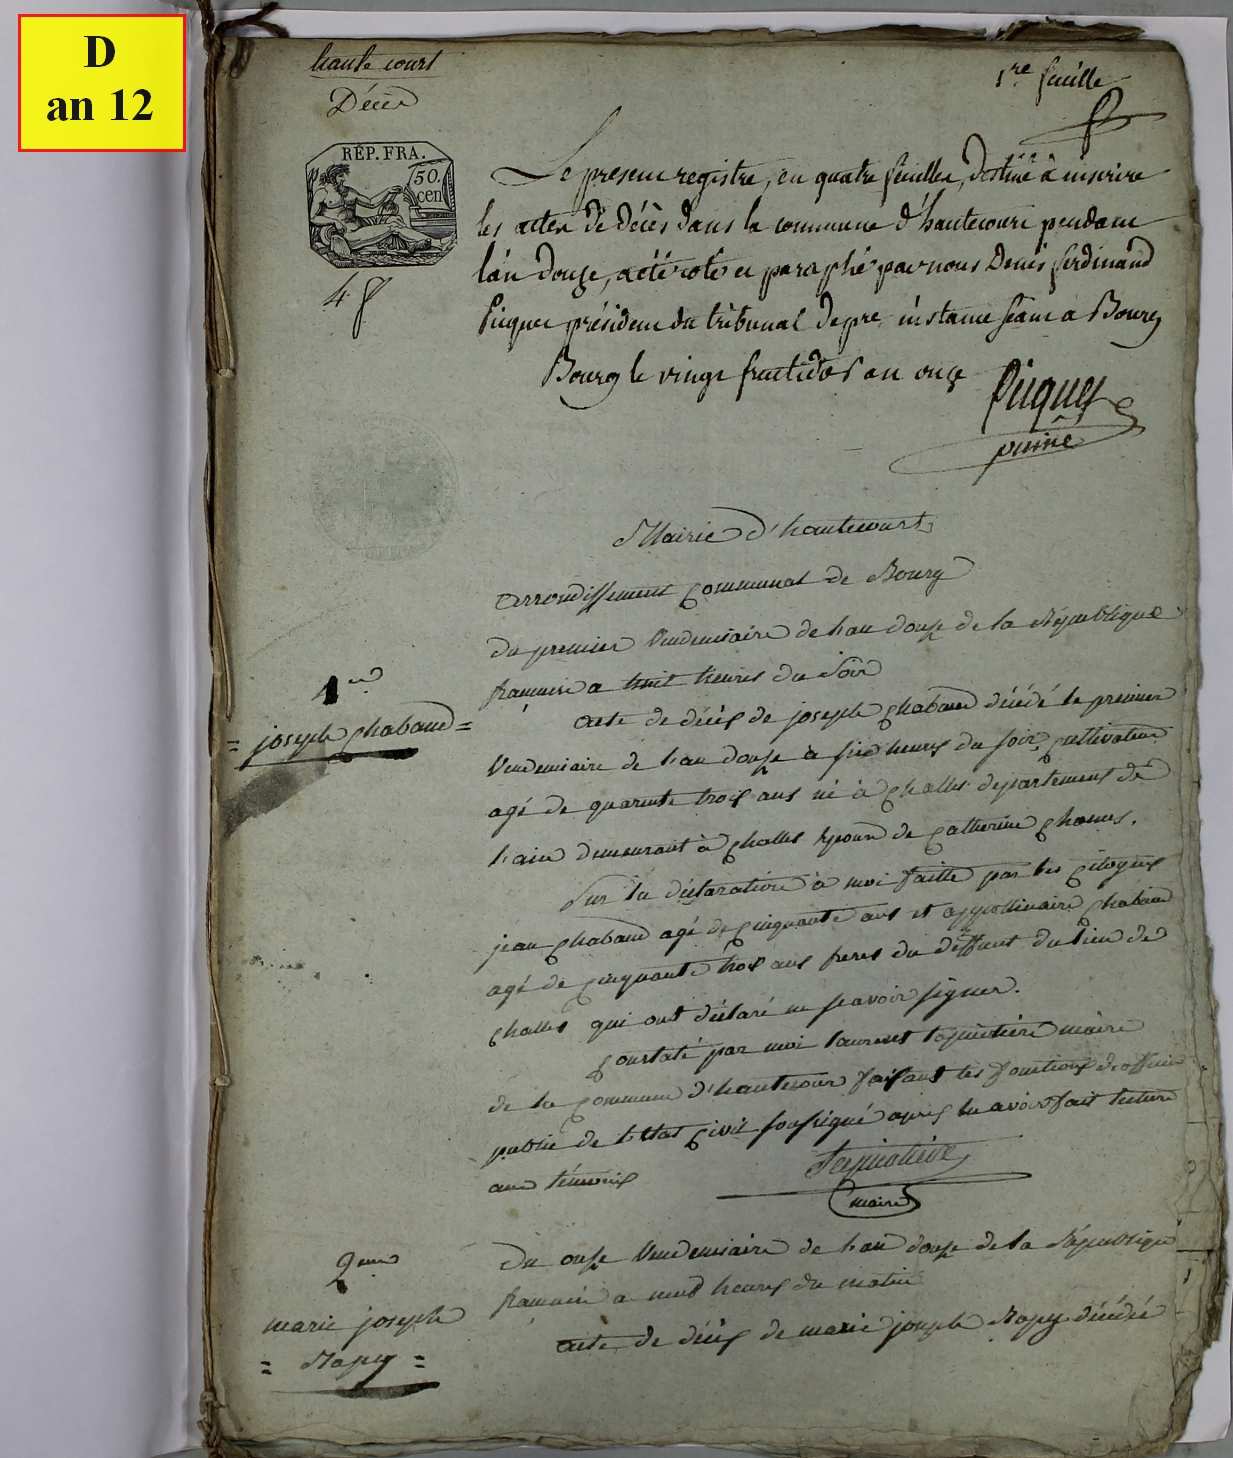 D
an 12
haute court
Décès
1re feuille
RÉP. FRA.
50.
cen
4 f
Le present registre, en quatre feuilles, destiné à inscrire
les actes de décès dans la commune d'hautecourt pendant
l'an douze, a été coté et paraphé par nous Denis ferdinand
Picquet président du tribunal de pre instance séant à Bourg
Bourg le vingt fructidor an onze
Picquet
Mairie d'hautecourt
arrondissement communal de Bourg
du premier Vendemiaire de l'an douze de la République
francaise a huit heures du Soir
1er
joseph chabaud =
acte de décès de joseph chabaud décédé le premier
Vendemiaire de l'an douze à six heures du soir, cultivateur
agé de quarente trois ans né à challes departement de
l'ain demeurant à challes Epoux de catherine
Sur la déclaration à moi faitte par les citoyens
jean chabaud agé de cinquante ans et appollinaire chabaud
agé de cinquante trois ans freres du deffunt du lieu de
challes qui ont déclaré ne scavoir signer.
constaté par moi laurent tapinotière maire
de la commune d'hautecour faisant les fonctions d'officier
public de l'Etat civil soussigné apres en avoir fait lecture
aux témoins
maire
2me
marie joseph
= Rapy =
Du onze Vendemiaire de l'an douze de la République
francaise a neuf heures du matin
acte de décès de marie joseph Rapy décédée